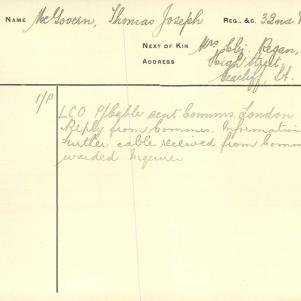 NAME McGovern, Thomas Joseph REG. &C. 32nd
NEXT OF KIN Mrs. Eliz. Regan,
ADDRESS High Street,
Seacliff, St.
1/P
LCO P/Cable sent Comms. London
Reply from Commrs. Information
further cable received from Comm
warded Inquirer